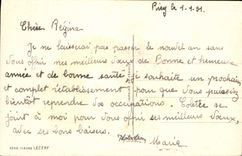 Puey le 1.1.31.
Chère Régina
Je ne laisserai pas passer le nouvel an sans
vous offrir mes meilleurs vœux de Bonne et heureuse
année et de bonne santé, je souhaite un prochain
et complet rétablissement pour que vous puissiez
bientôt reprendre vos occupations. Colette se
joint à moi pour vous offrir ses meilleurs vœux,
avec ses bons baisers.
Marie